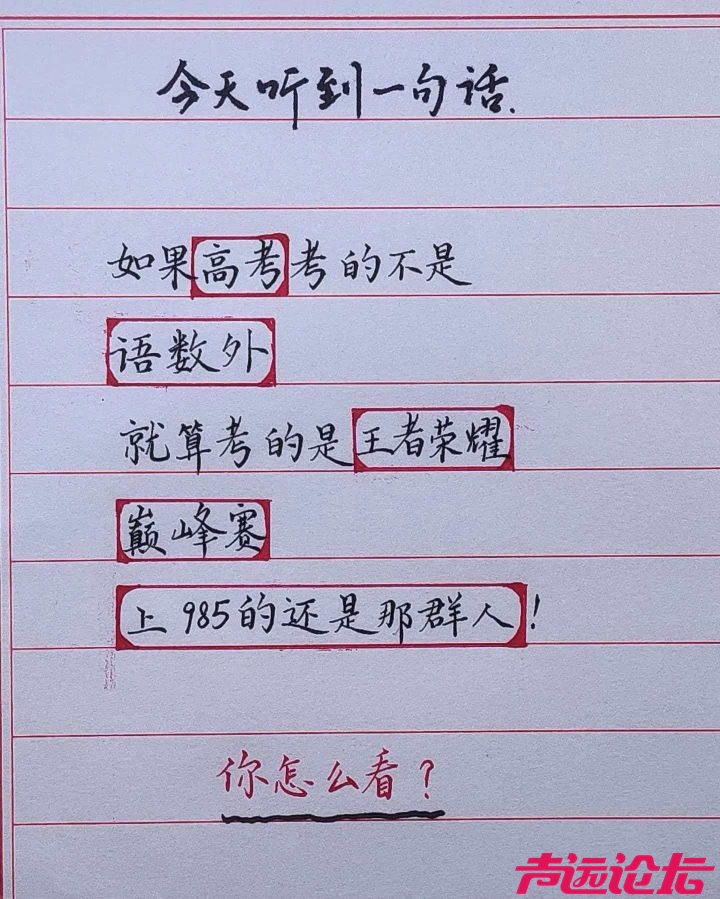 今天听到一句话.
如果高考考的不是
语数外
就算考的是王者荣耀
巅峰赛
上985的还是那群人!
你怎么看?
声远论坛